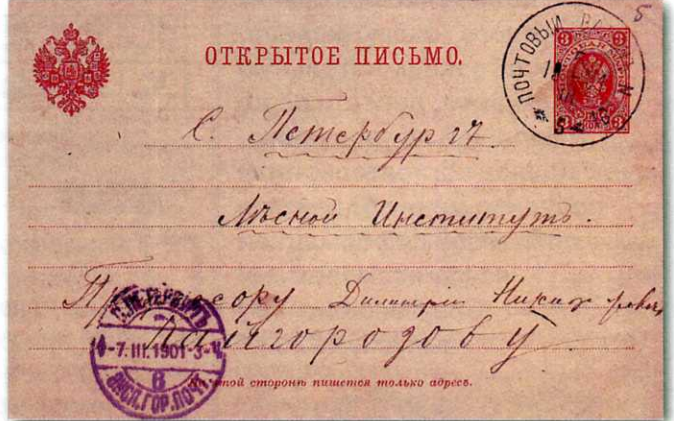 5
ОТКРЫТОЕ ПИСЬМО.
3 3
ПОЧТОВЫЙ
С. Петербургъ
Лѣсной Институтъ.
Профессору Димитрію Никифоровичу
Кайгородову
С.ПЕТЕРБУРГЪ
-7.III.1901-3-
6
ЭКСП.ГОР.ПОЧТ.
На этой сторонѣ пишется только адресъ.